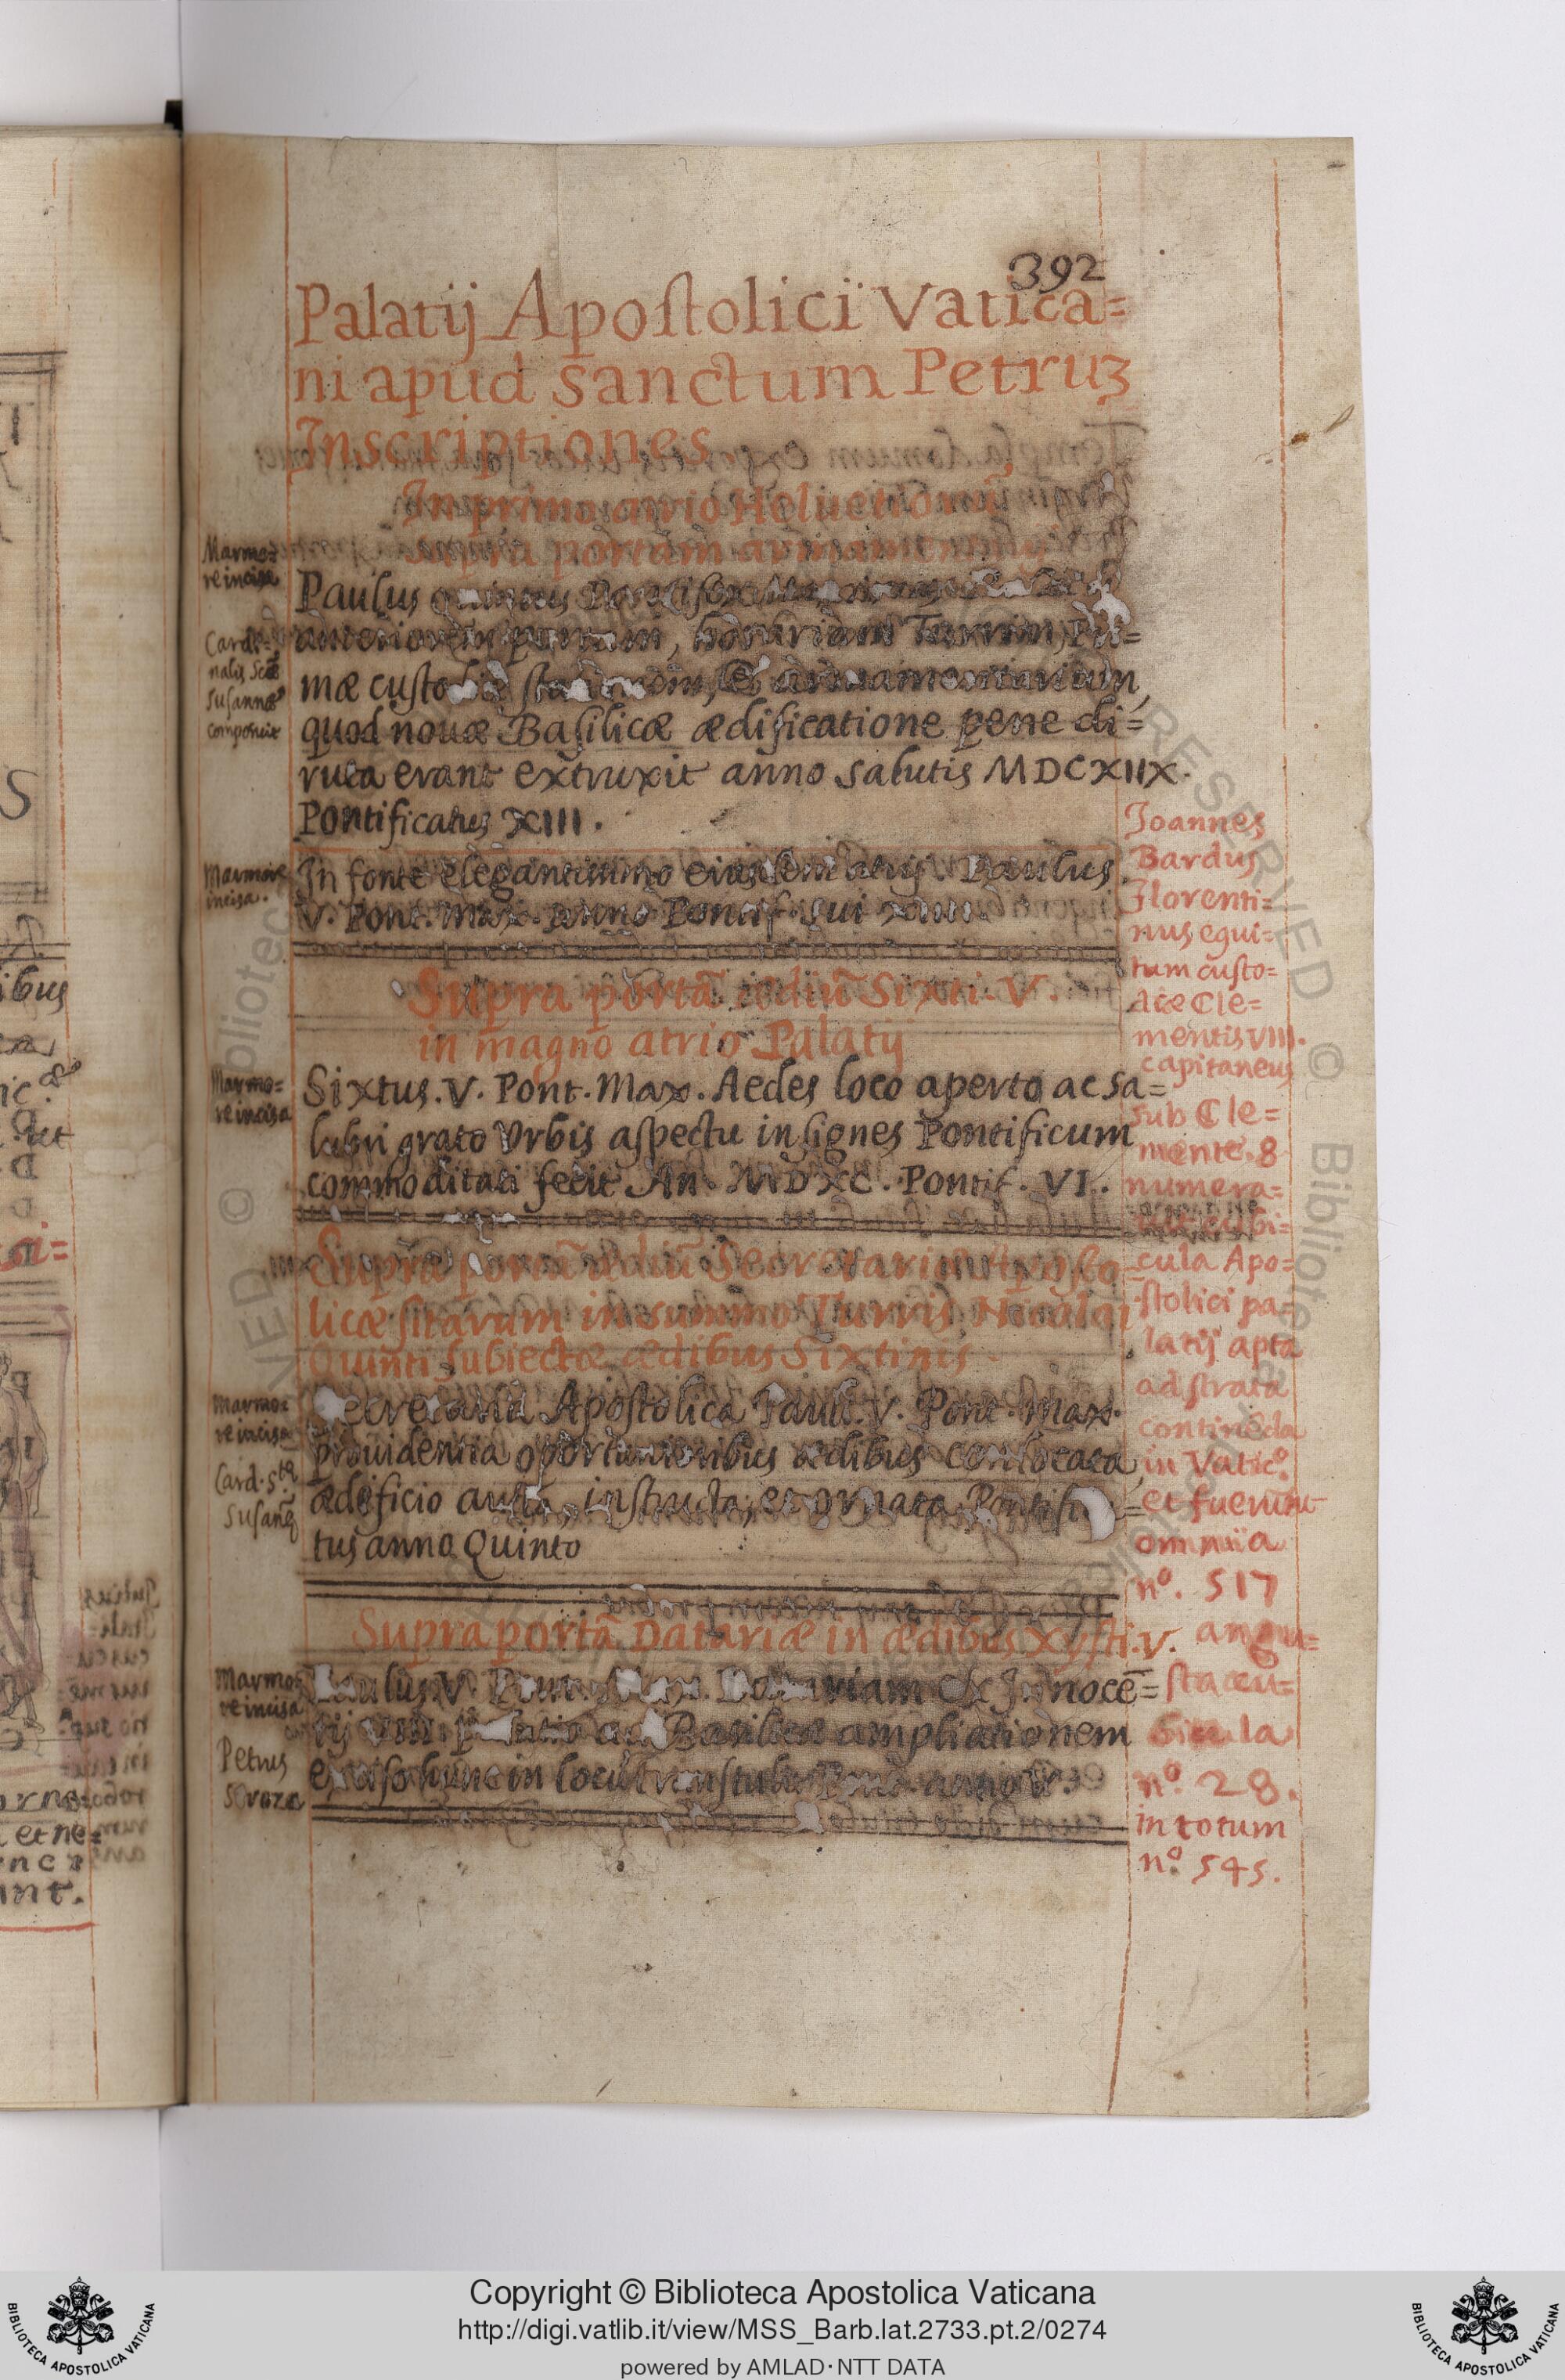 392
Palatij Apostolici Vatica=
ni apud Sanctum Petruȝ
Inscriptiones
In primo atrio Heluetiorũ
supra portam armamentarij
Marmo=
re incisa
Paulus quintus Pontifex Maximus
Cardi=
nalis Scẽ
Susannæ
composuit
anteriorem portam, horariam Turrim, Pri=
mæ custodiæ stationem, & armamentarium,
quod nouæ Basilicæ ædificatione pene di=
ruta erant extruxit anno salutis MDCXIIX.
Pontificatus XIII.
Marmore
incisa.
In fonte elegantissimo eiusdem atrij. Paulus
V. Pont. Max. anno Pontif. sui
Supra portã ædiũ Sixti. V.
in magno atrio Palatij
Marmo=
re incisa
Sixtus. V. Pont. Max. Aedes loco aperto ac sa=
lubri grato Vrbis aspectu insignes Pontificum
commoditati fecit An. MDXC. Pontif. VI.
Supra portã ædiũ Secretariæ Aposto=
licæ sitarum in summo Turris Nicolai
Quinti subiectæ ædibus Sixtinis
Marmo=
re incisa
Card. Stæ
Susanę
Secretaria Apostolica Pauli. V. Pont. Max.
prouidentia oportunioribus ædibus conlocata,
ædificio aucta, instructa, et ornata Pontifica=
tus anno Quinto
Supra portã Datariæ in ædibus Xysti. V.
Marmo=
re incisa
Petrus
Paulus V. Pont. Max. Datariam ex Innocẽ=
tij VIII. palatio ad Basilicæ ampliationem
exciso hunc in locũ transtulit Pont. anno
Joannes
Bardus
Florenti=
nus equi=
tum custo=
diæ Cle=
mentis VIII.
capitaneus
sub Cle=
mente. 8
numera=
uit cubi=
cula Apo=
stolici pa=
latij apta
ad strata
continẽda
in Vatico.
et fuerunt
omnia
no. 517
angu=
sta cu=
bicula
no. 28.
in totum
no. 545.
ibus
S
ant.
Copyright © Biblioteca Apostolica Vaticana
http://digi.vatlib.it/view/MSS_Barb.lat.2733.pt.2/0274
powered by AMLAD · NTT DATA
BIBLIOTECA APOSTOLICA VATICANA
BIBLIOTECA APOSTOLICA VATICANA